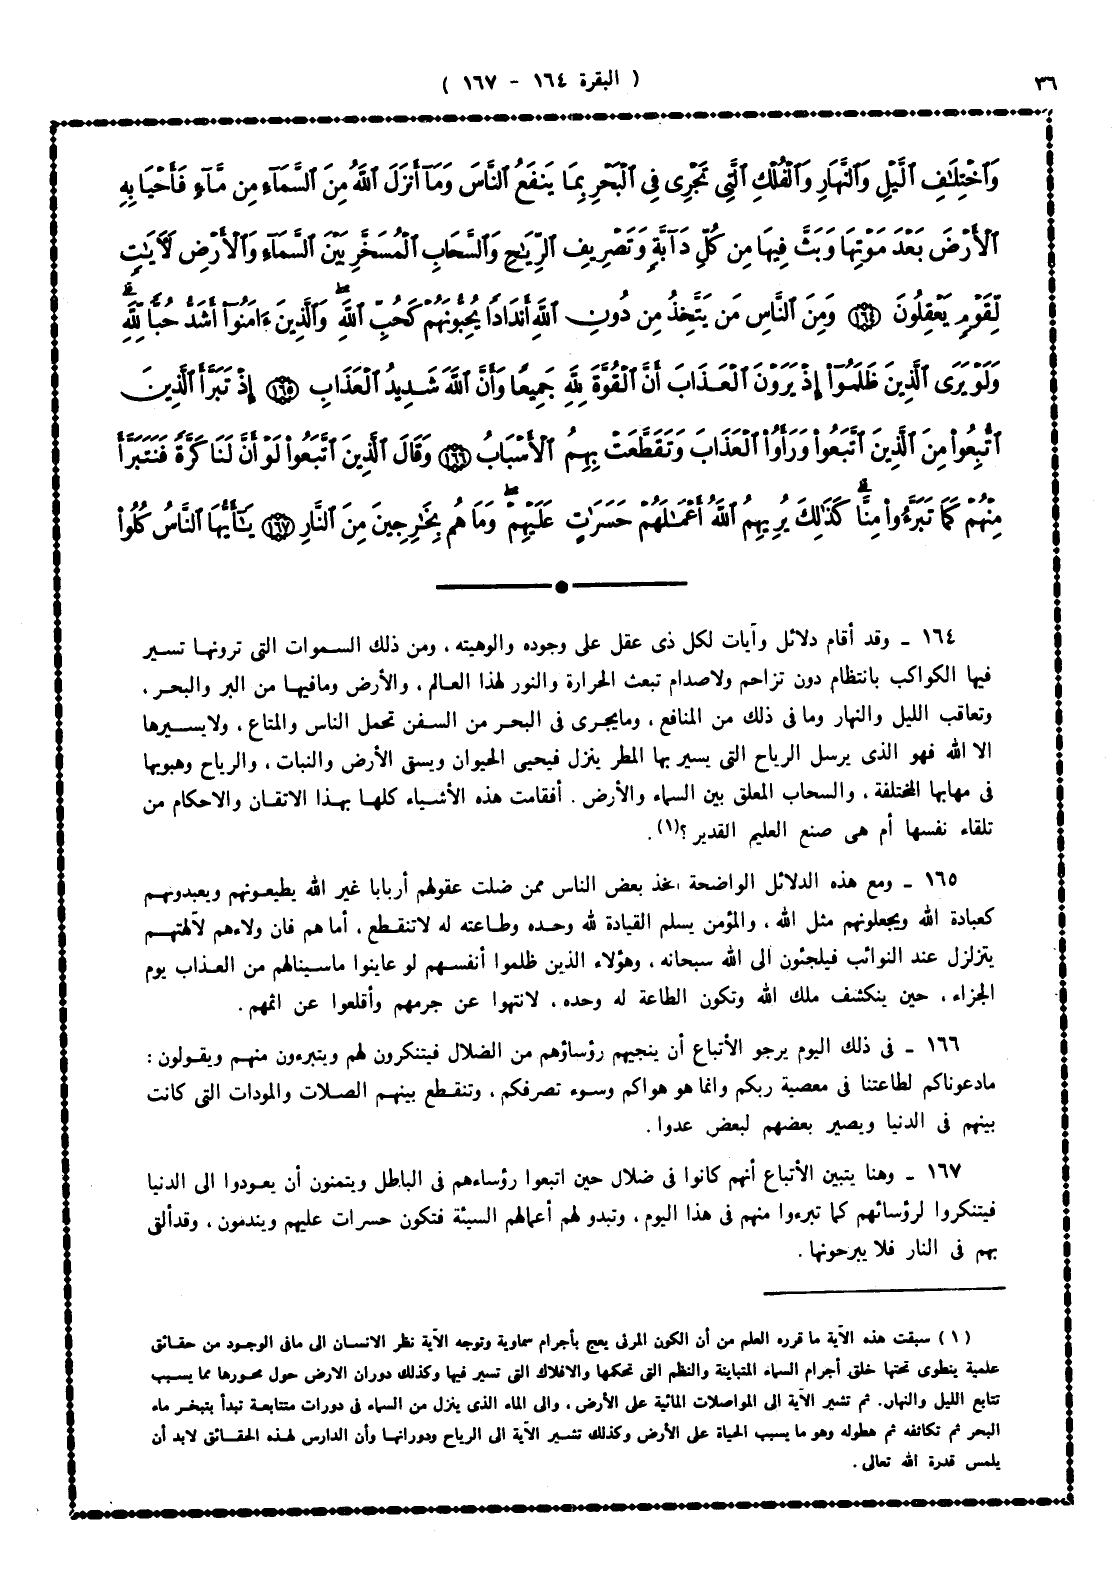 ٣٦
( البقرة ١٦٤ - ١٦٧ )
وَٱخْتِلَٰفِ ٱلَّيْلِ وَٱلنَّهَارِ وَٱلْفُلْكِ ٱلَّتِى تَجْرِى فِى ٱلْبَحْرِ بِمَا يَنفَعُ ٱلنَّاسَ وَمَآ أَنزَلَ ٱللَّهُ مِنَ ٱلسَّمَآءِ مِن مَّآءٍ فَأَحْيَا بِهِ
ٱلْأَرْضَ بَعْدَ مَوْتِهَا وَبَثَّ فِيهَا مِن كُلِّ دَآبَّةٍ وَتَصْرِيفِ ٱلرِّيَٰحِ وَٱلسَّحَابِ ٱلْمُسَخَّرِ بَيْنَ ٱلسَّمَآءِ وَٱلْأَرْضِ لَأٓيَٰتٍ
لِّقَوْمٍ يَعْقِلُونَ ١٦٤ وَمِنَ ٱلنَّاسِ مَن يَتَّخِذُ مِن دُونِ ٱللَّهِ أَندَادًا يُحِبُّونَهُمْ كَحُبِّ ٱللَّهِ ۖ وَٱلَّذِينَ ءَامَنُوٓا۟ أَشَدُّ حُبًّا لِّلَّهِ ۗ
وَلَوْ يَرَى ٱلَّذِينَ ظَلَمُوٓا۟ إِذْ يَرَوْنَ ٱلْعَذَابَ أَنَّ ٱلْقُوَّةَ لِلَّهِ جَمِيعًا وَأَنَّ ٱللَّهَ شَدِيدُ ٱلْعَذَابِ ١٦٥ إِذْ تَبَرَّأَ ٱلَّذِينَ
ٱتُّبِعُوا۟ مِنَ ٱلَّذِينَ ٱتَّبَعُوا۟ وَرَأَوُا۟ ٱلْعَذَابَ وَتَقَطَّعَتْ بِهِمُ ٱلْأَسْبَابُ ١٦٦ وَقَالَ ٱلَّذِينَ ٱتَّبَعُوا۟ لَوْ أَنَّ لَنَا كَرَّةً فَنَتَبَرَّأَ
مِنْهُمْ كَمَا تَبَرَّءُوا۟ مِنَّا ۗ كَذَٰلِكَ يُرِيهِمُ ٱللَّهُ أَعْمَٰلَهُمْ حَسَرَٰتٍ عَلَيْهِمْ ۖ وَمَا هُم بِخَٰرِجِينَ مِنَ ٱلنَّارِ ١٦٧ يَٰٓأَيُّهَا ٱلنَّاسُ كُلُوا۟
١٦٤ ـ وقد أقام دلائل وآيات لكل ذى عقل على وجوده والوهيته ، ومن ذلك السموات التى ترونها تسير
فيها الكواكب بانتظام دون تزاحم ولاصدام تبعث الحرارة والنور لهذا العالم ، والأرض ومافيها من البر والبحر ،
وتعاقب الليل والنهار وما فى ذلك من المنافع ، ومايجرى فى البحر من السفن تحمل الناس والمتاع ، ولايسيرها
الا الله فهو الذى يرسل الرياح التى يسير بها المطر ينزل فيحيى الحيوان ويسقى الأرض والنبات ، والرياح وهبوبها
فى مهابها المختلفة ، والسحاب المعلق بين السماء والأرض . أفقامت هذه الأشياء كلها بهذا الاتقان والاحكام من
تلقاء نفسها أم هى صنع العليم القدير ؟(١) .
١٦٥ ـ ومع هذه الدلائل الواضحة اتخذ بعض الناس ممن ضلت عقولهم أربابا غير الله يطيعونهم ويعبدونهم
كعبادة الله ويجعلونهم مثل الله ، والمؤمن يسلم القيادة لله وحده وطاعته له لاتنقطع ، أما هم فان ولاءهم لآلهتهم
يتزلزل عند النوائب فيلجئون الى الله سبحانه ، وهؤلاء الذين ظلموا أنفسهم لو عاينوا ماسينالهم من العذاب يوم
الجزاء ، حين ينكشف ملك الله وتكون الطاعة له وحده ، لانتهوا عن جرمهم وأقلعوا عن اثمهم .
١٦٦ ـ فى ذلك اليوم يرجو الأتباع أن ينجيهم رؤساؤهم من الضلال فيتنكرون لهم ويتبرءون منهم ويقولون :
مادعوناكم لطاعتنا فى معصية ربكم وانما هو هواكم وسوء تصرفكم ، وتنقطع بينهم الصلات والمودات التى كانت
بينهم فى الدنيا ويصير بعضهم لبعض عدوا .
١٦٧ ـ وهنا يتبين الأتباع أنهم كانوا فى ضلال حين اتبعوا رؤساءهم فى الباطل ويتمنون أن يعودوا الى الدنيا
فيتنكروا لرؤسائهم كما تبرءوا منهم فى هذا اليوم ، وتبدو لهم أعمالهم السيئة فتكون حسرات عليهم ويندمون ، وقدألقى
بهم فى النار فلا يبرحونها .
( ١ ) سبقت هذه الآية ما قرره العلم من أن الكون المرئى يعج بأجرام سماوية وتوجه الآية نظر الانسان الى مافى الوجود من حقائق
علمية ينطوى تحتها خلق أجرام السماء المتباينة والنظم التى تحكمها والافلاك التى تسير فيها وكذلك دوران الارض حول محورها مما يسبب
تتابع الليل والنهار. ثم تشير الآية الى المواصلات المائية على الأرض ، والى الماء الذى ينزل من السماء فى دورات متتابعة تبدأ بتبخر ماء
البحر ثم تكاثفه ثم هطوله وهو ما يسبب الحياة على الأرض وكذلك تشير الآية الى الرياح ودوراتها وأن الدارس لهذه الحقائق لابد أن
يلمس قدرة الله تعالى .